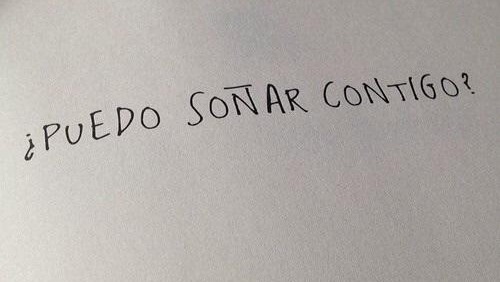 ¿PUEDO SOÑAR CONTIGO?